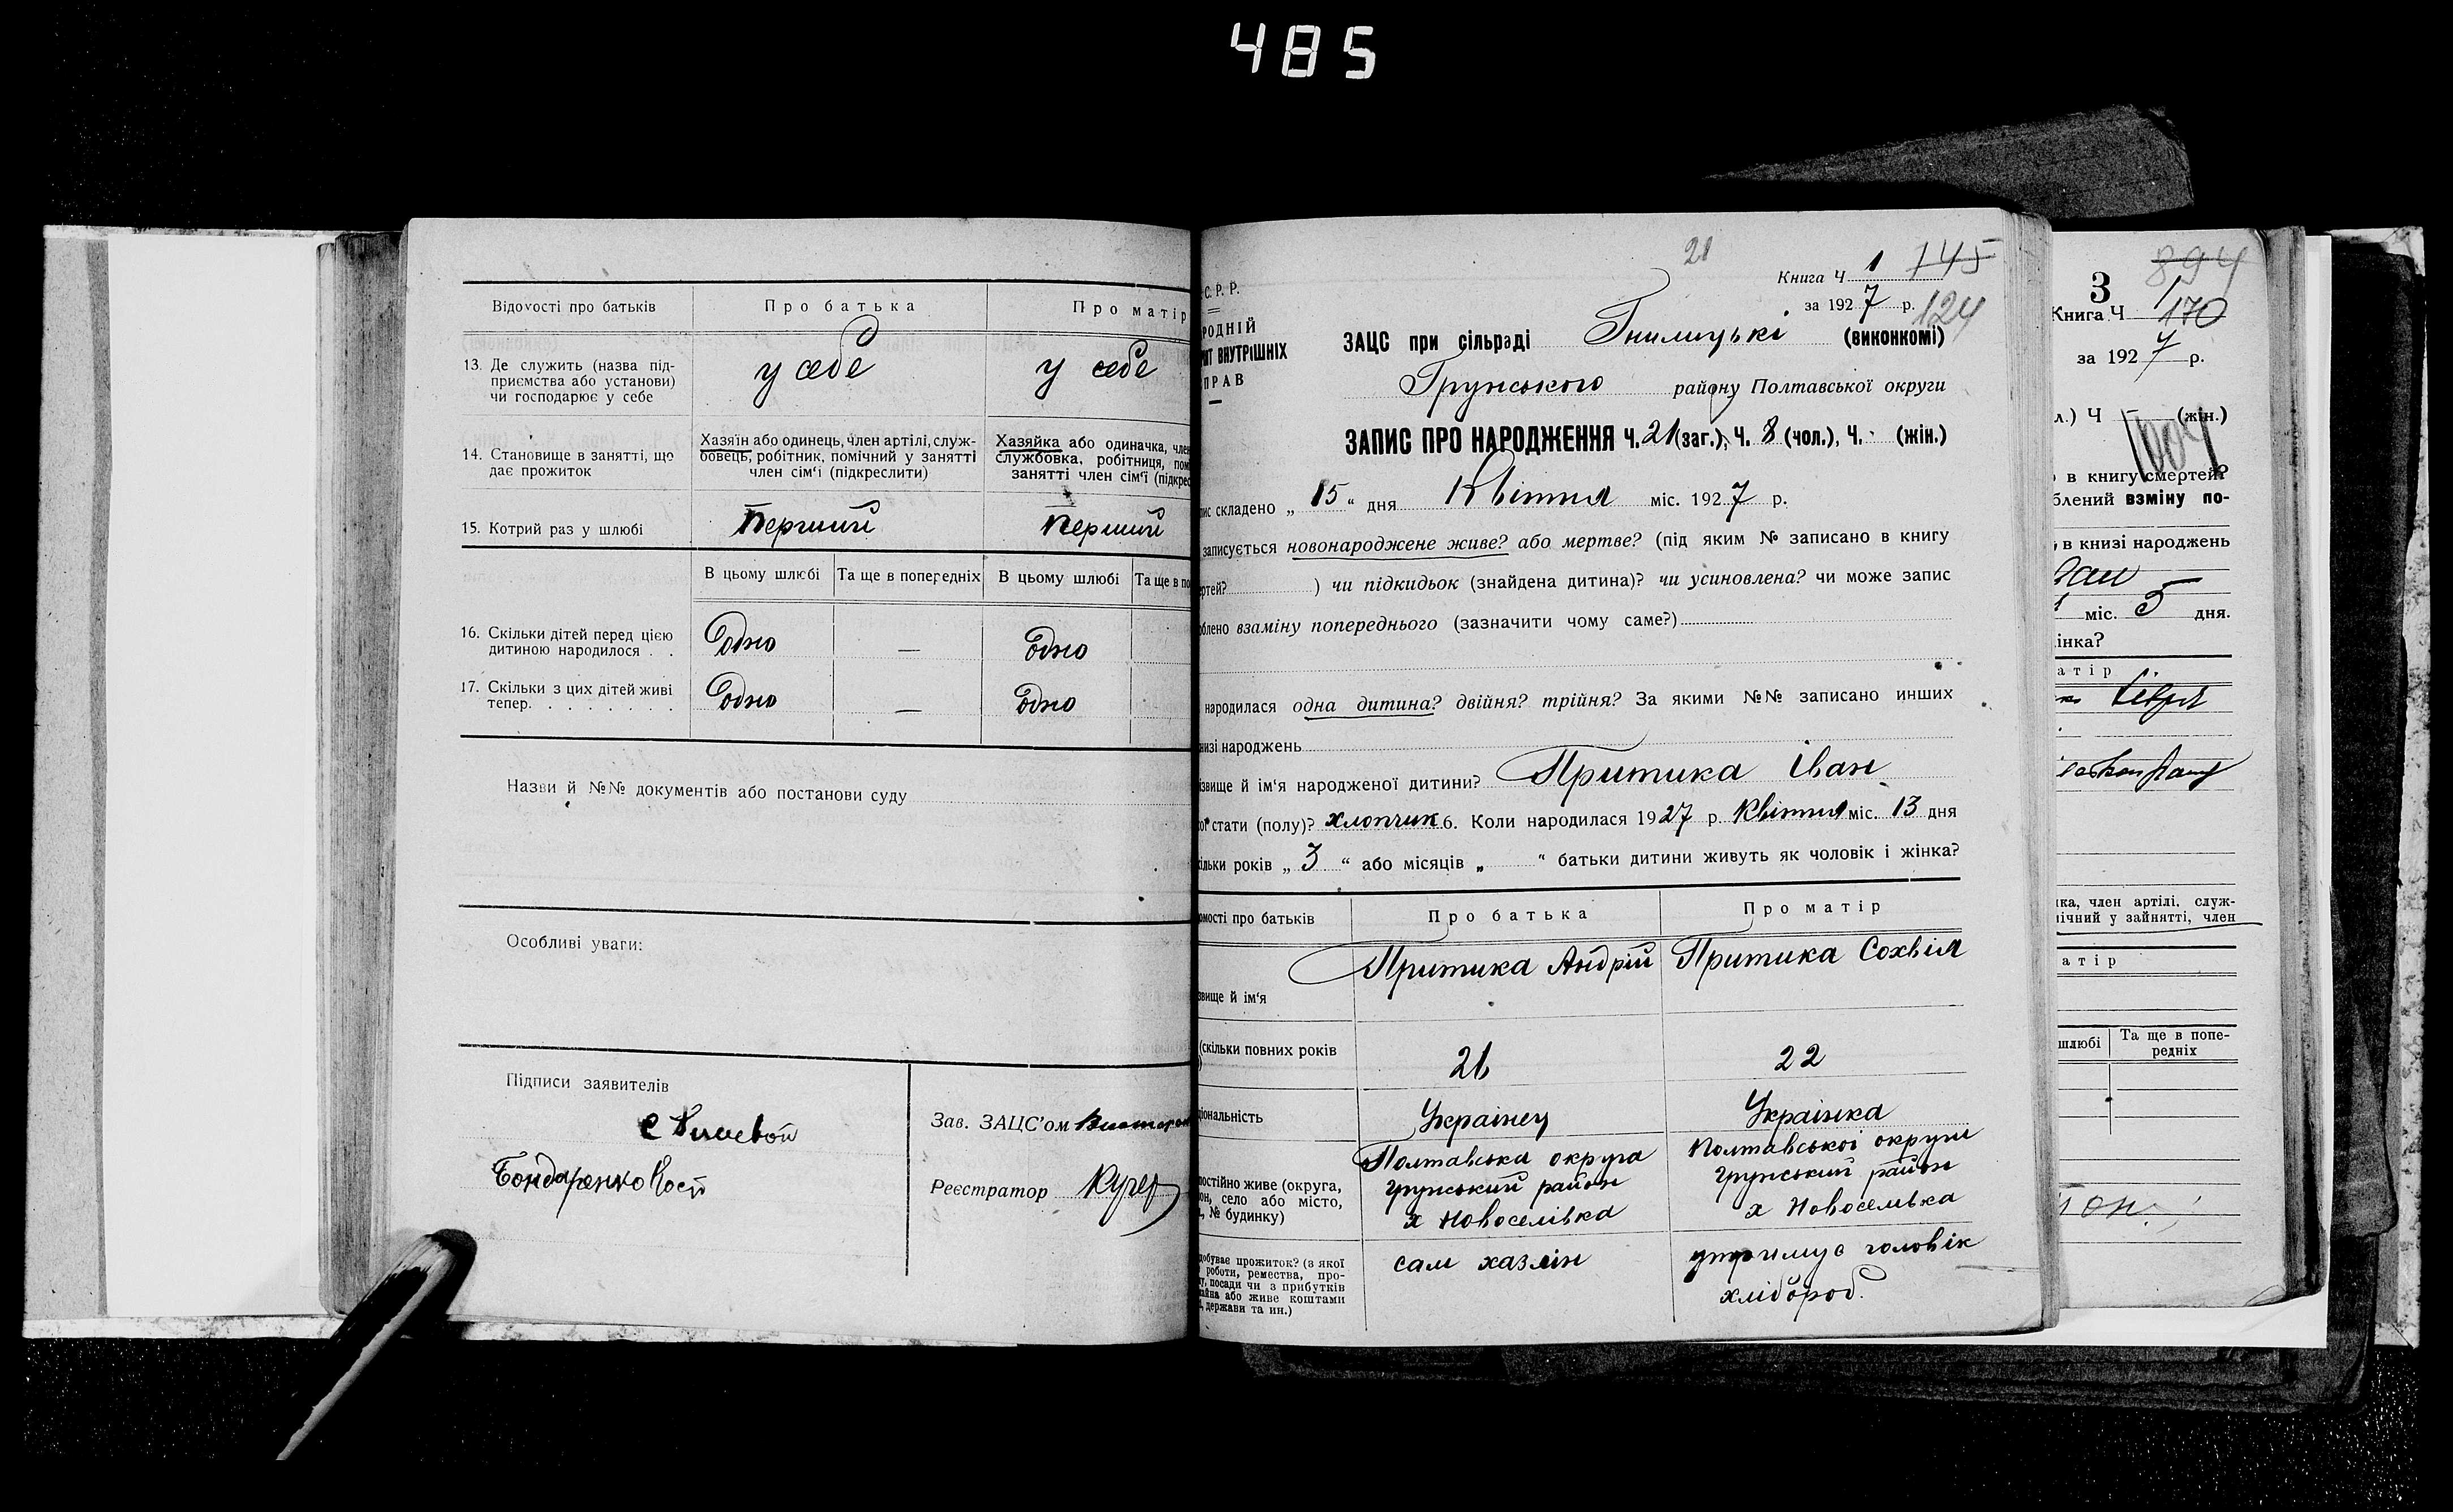 485
Відомості про батьків
Про батька
Про матір
13. Де служить (назва під-
приємства або установи)
чи господарює у себе
у себе
у себе
14. Становище в занятті, що
дає прожиток
Хазяїн або одинець, член артілі, служ-
бовець, робітник, помічний у занятті
член сім'ї (підкреслити)
Хазяйка або одиначка, член
службовка, робітниця, пом
занятті член сім'ї (підкрес
15. Котрий раз у шлюбі
Перший
Перший
В цьому шлюбі
Та ще в попередніх
В цьому шлюбі
Та ще в по
16. Скільки дітей перед цією
дитиною народилося . .
Одно
—
Одно
17. Скільки з цих дітей живі
тепер. . . . . . . .
Одно
—
Одно
Назви й №№ документів або постанови суду
Особливі уваги:
Підписи заявителів
Бондаренко
Зав. ЗАЦС'ом
Реєстратор Кучер
21
Книга Ч 1 145
за 1927 р. 124
С. Р. Р.
РОДНІЙ
РІЯТ ВНУТРІШНІХ
ПРАВ
ЗАЦС при сільраді Гнилицькі (виконкомі)
Грунського району Полтавської округи
ЗАПИС ПРО НАРОДЖЕННЯ Ч. 21 (заг.), Ч. 8 (чол.), Ч. - (жін.)
пис складено „ 15 “ дня Квітня міс. 1927 р.
записується новонароджене живе? або мертве? (під яким № записано в книгу
ертей? ) чи підкидьок (знайдена дитина)? чи усиновлена? чи може запис
облено взаміну попереднього (зазначити чому саме?)
народилася одна дитина? двійня? трійня? За якими №№ записано инших
низі народжень
ізвище й ім'я народженої дитини? Притика Іван
ої стати (полу)? хлопчик 6. Коли народилася 1927 р. Квітня міс. 13 дня
ільки років „ 3 “ або місяців „ “ батьки дитини живуть як чоловік і жінка?
омості про батьків
Про батька
Про матір
звище й ім'я
Притика Андрій
Притика Сохвія
(скільки повних років
21
22
ціональність
Українец
Українка
постійно живе (округа,
он, село або місто,
, № будинку)
Полтавська округа
грунський район
х Новоселівка
Полтавської округи
грунський район
х Новоселівка
добуває прожиток? (з якої
роботи, ремества, про-
у, посади чи з прибутків
айна або живе коштами
, держави та ин.)
сам хазяїн
утримує чоловік
хлібороб.
3
894
Книга Ч 1/170
за 1927 р.
л.) Ч - (жін.)
в книгу смертей?
блений взміну по-
в книзі народжень
міс. 5 дня.
інка?
атір
ка, член артілі, служ-
ічний у зайнятті, член
атір
шлюбі
Та ще в попе-
редніх